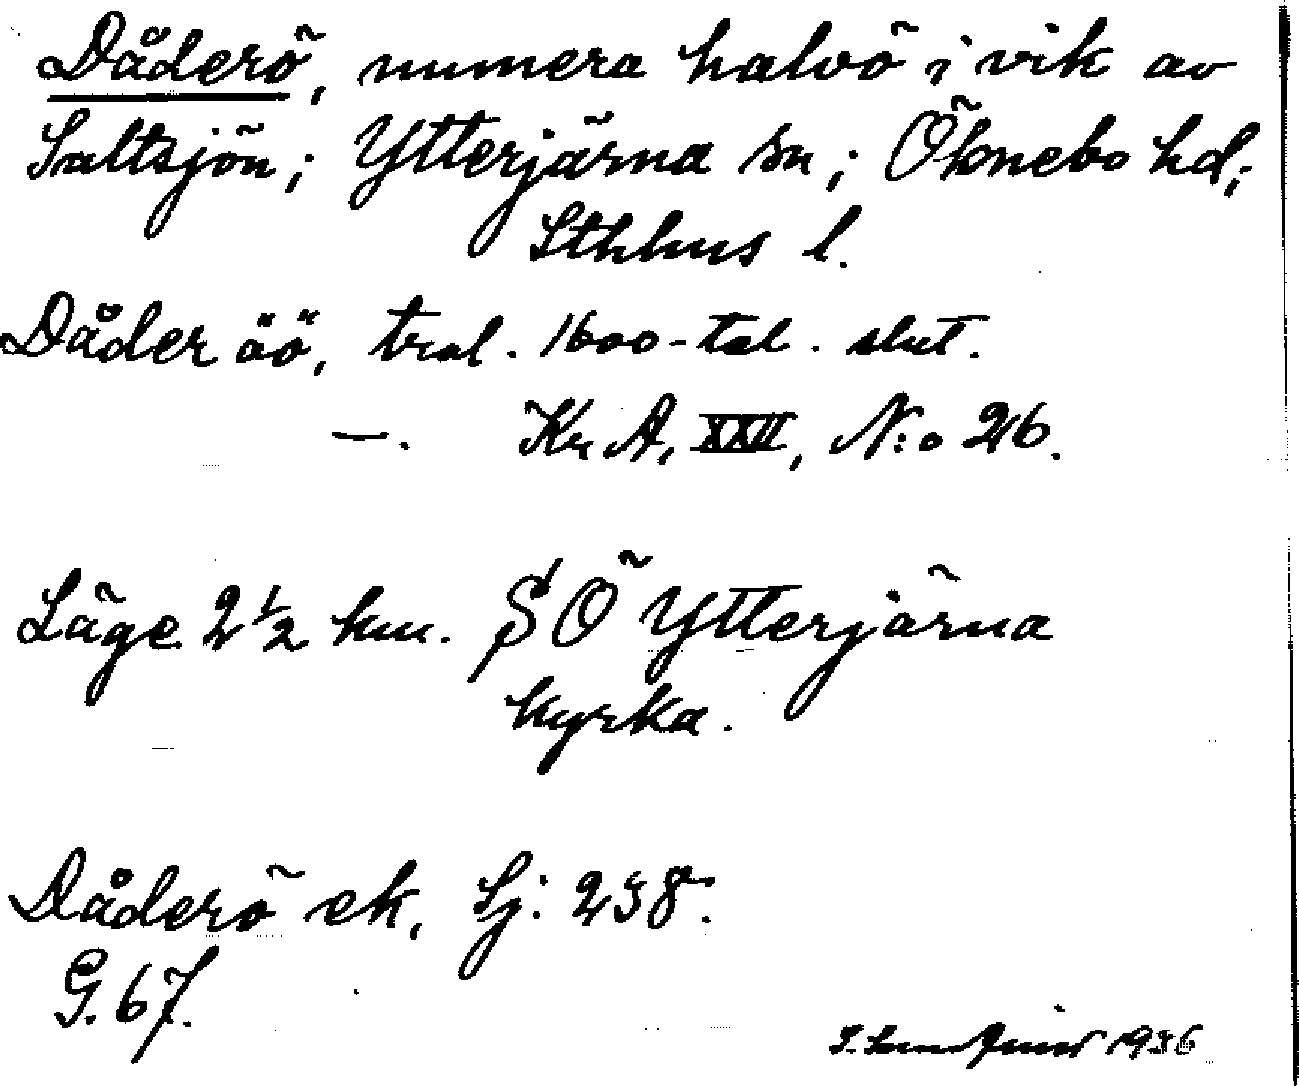 Dåderö, numera halvö i vik av
Saltsjön; Ytterjärna sn; Öknebo hd;
Sthlms l.
Dåder öö, tral. 1600-tal. slut.
—. Kr A, XXII, N:o 26.
Läge 2 ½ km. SÖ Ytterjärna
kyrka.
Dåderö ek, Sj: 238.
G. 67.
1936